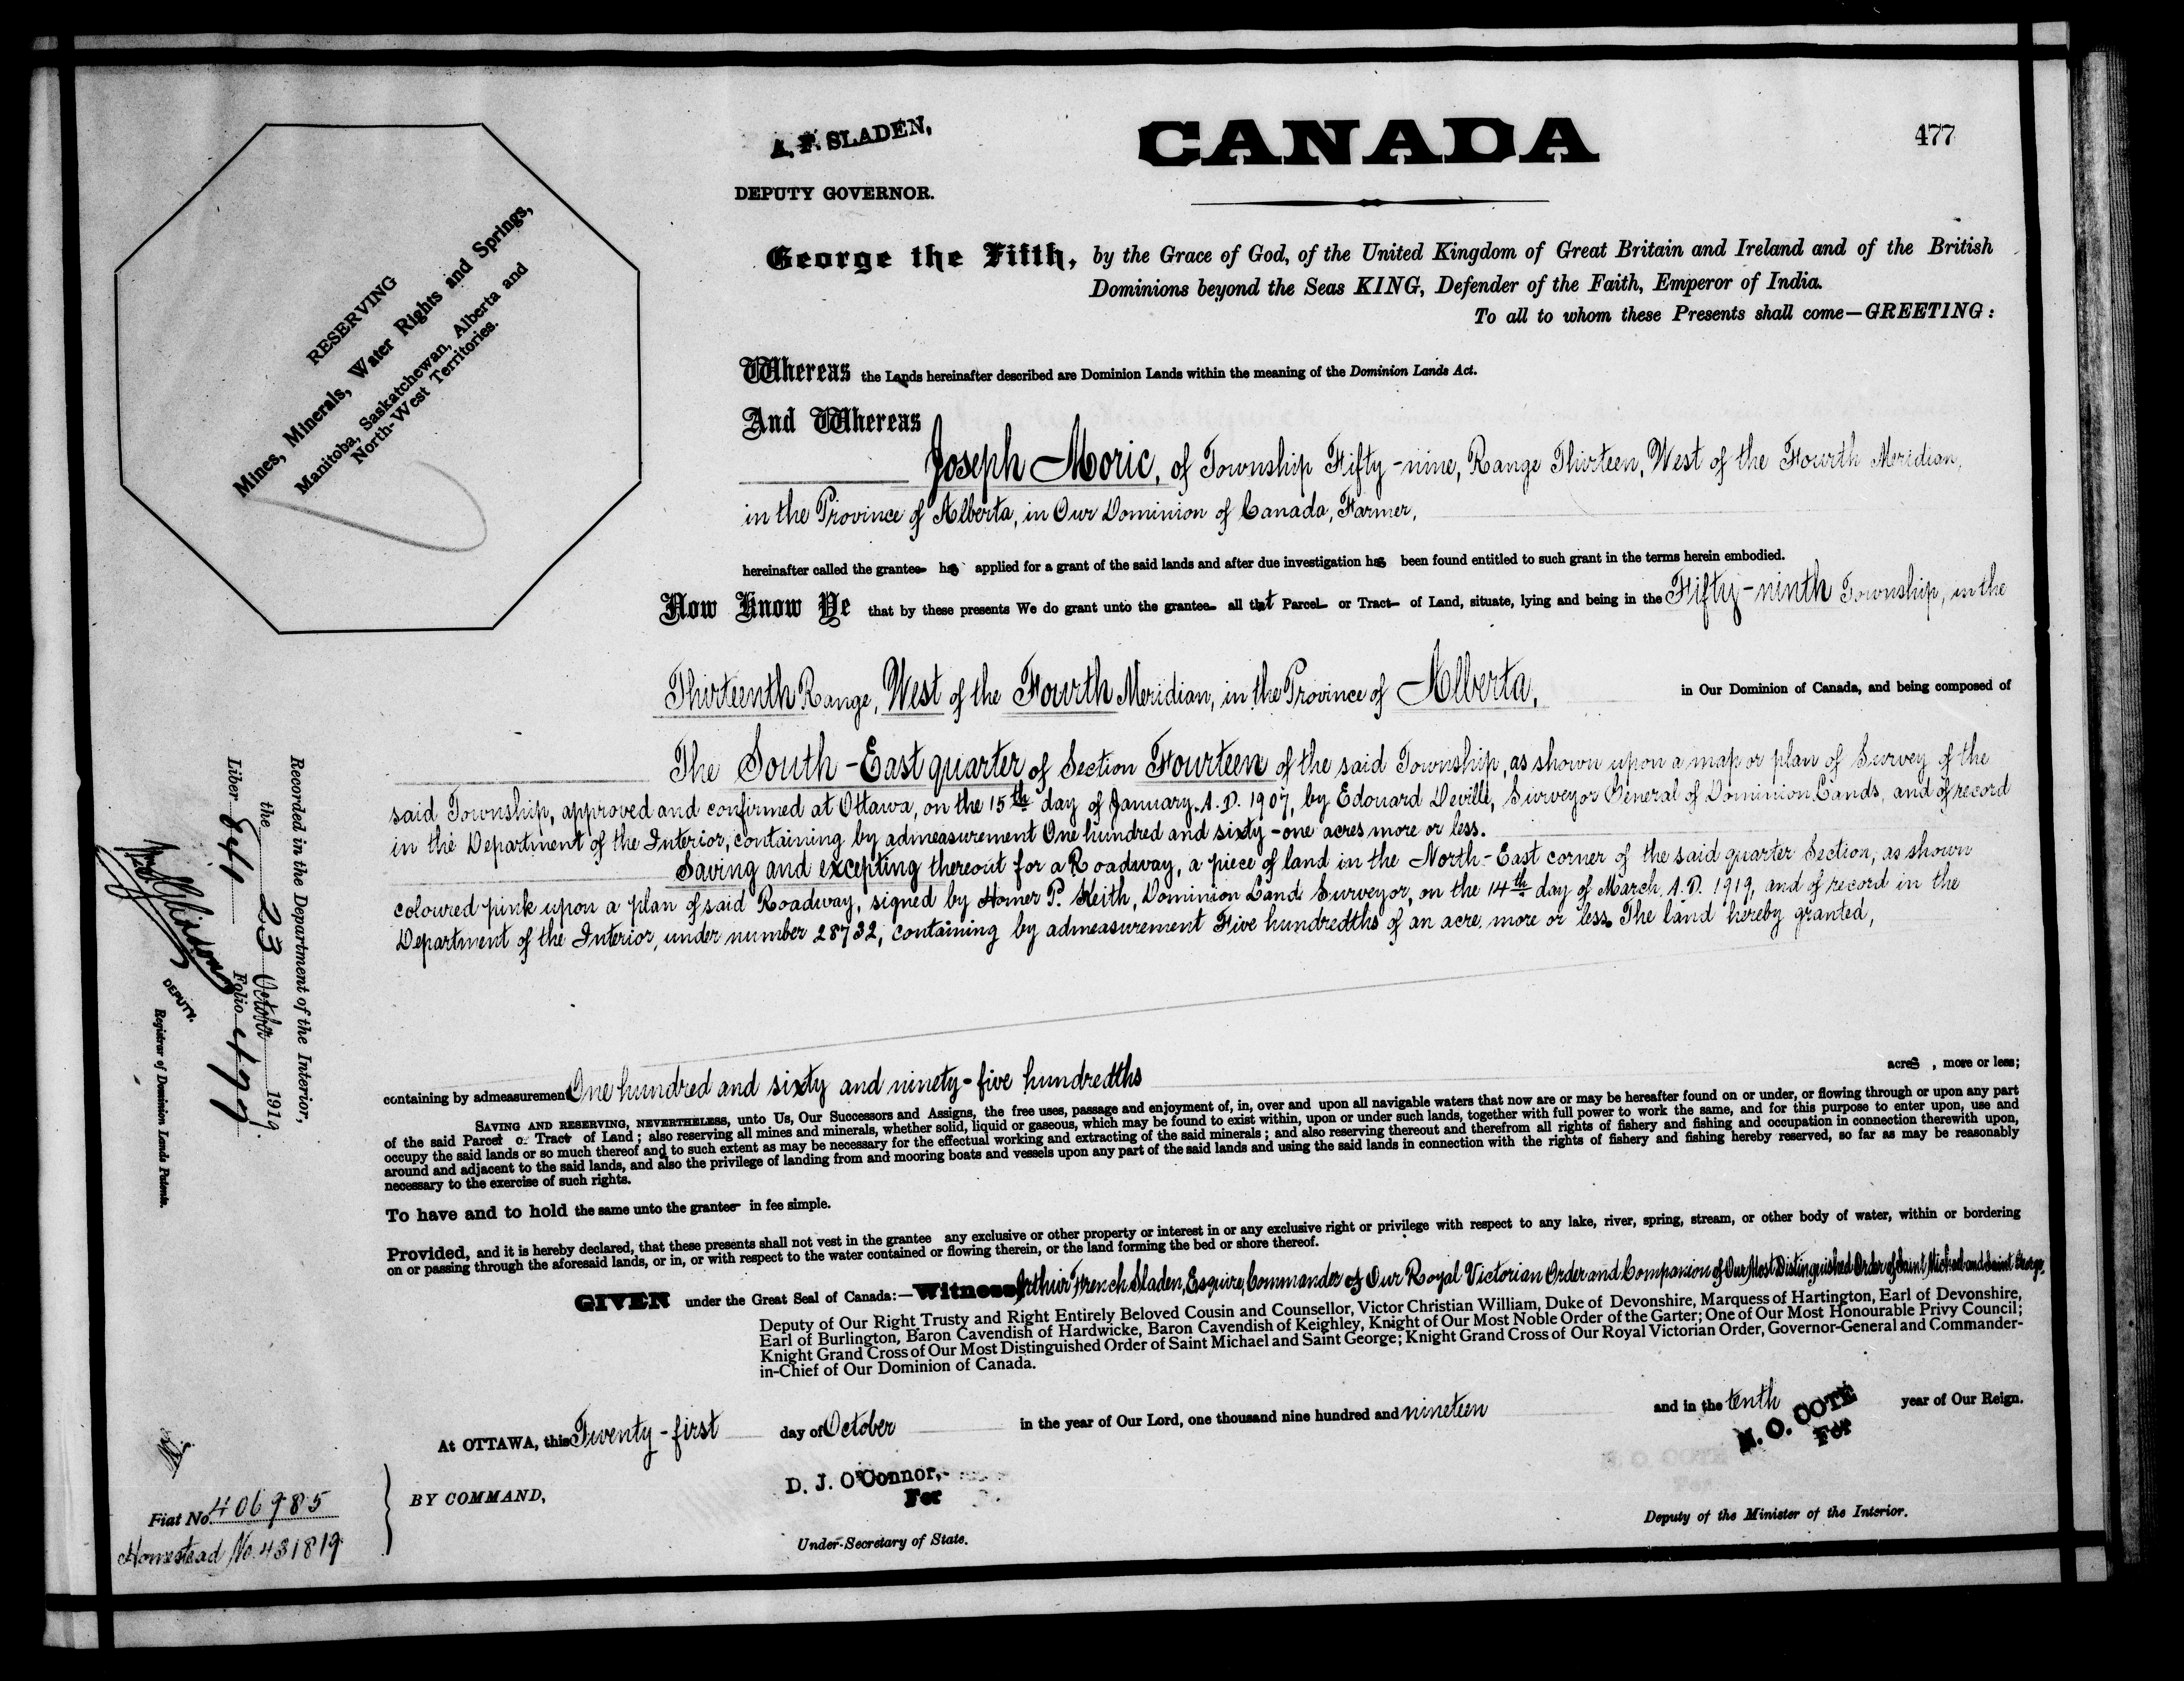 A. F. SLADEN,
DEPUTY GOVERNOR.
CANADA
477
RESERVING
Mines, Minerals, Water Rights and Springs,
Manitoba, Saskatchewan, Alberta and
North-West Territories.
George the Fifth, by the Grace of God, of the United Kingdom of Great Britain and Ireland and of the British
Dominions beyond the Seas KING, Defender of the Faith, Emperor of India.
To all to whom these Presents shall come—GREETING:
Whereas the Lands hereinafter described are Dominion Lands within the meaning of the Dominion Lands Act.
And Whereas
Joseph Moric, of Township Fifty-nine, Range Thirteen, West of the Fourth Meridian,
in the Province of Alberta, in Our Dominion of Canada, Farmer,
hereinafter called the grantee has applied for a grant of the said lands and after due investigation has been found entitled to such grant in the terms herein embodied.
Now Know Ye that by these presents We do grant unto the grantee all that Parcel or Tract of Land, situate, lying and being in the Fifty-ninth Township, in the
Thirteenth Range, West of the Fourth Meridian, in the Province of Alberta, in Our Dominion of Canada, and being composed of
The South-East quarter of Section Fourteen of the said Township, as shown upon a map or plan of Survey of the
said Township, approved and confirmed at Ottawa, on the 15th day of January A.D. 1907, by Edouard Deville, Surveyor General of Dominion Lands, and of record
in the Department of the Interior, containing by admeasurement One hundred and sixty-one acres more or less.
Saving and excepting thereout for a Roadway, a piece of land in the North-East corner of the said quarter Section, as shown
coloured pink upon a plan of said Roadway, signed by Homer P. Keith, Dominion Land Surveyor, on the 14th day of March, A.D. 1919, and of record in the
Department of the Interior, under number 28732, containing by admeasurement Five hundredths of an acre more or less. The land hereby granted,
containing by admeasurement One hundred and sixty and ninety-five hundredths acres, more or less;
SAVING AND RESERVING, NEVERTHELESS, unto Us, Our Successors and Assigns, the free uses, passage and enjoyment of, in, over and upon all navigable waters that now are or may be hereafter found on or under, or flowing through or upon any part
of the said Parcel or Tract of Land; also reserving all mines and minerals, whether solid, liquid or gaseous, which may be found to exist within, upon or under such lands, together with full power to work the same, and for this purpose to enter upon, use and
occupy the said lands or so much thereof and to such extent as may be necessary for the effectual working and extracting of the said minerals; and also reserving thereout and therefrom all rights of fishery and fishing and occupation in connection therewith upon,
around and adjacent to the said lands, and also the privilege of landing from and mooring boats and vessels upon any part of the said lands and using the said lands in connection with the rights of fishery and fishing hereby reserved, so far as may be reasonably
necessary to the exercise of such rights.
To have and to hold the same unto the grantee in fee simple.
Provided, and it is hereby declared, that these presents shall not vest in the grantee any exclusive or other property or interest in or any exclusive right or privilege with respect to any lake, river, spring, stream, or other body of water, within or bordering
on or passing through the aforesaid lands, or in, or with respect to the water contained or flowing therein, or the land forming the bed or shore thereof.
GIVEN under the Great Seal of Canada:—Witness, Arthur French Sladen, Esquire, Commander of Our Royal Victorian Order and Companion of Our Most Distinguished Order of Saint Michael and Saint George,
Deputy of Our Right Trusty and Right Entirely Beloved Cousin and Counsellor, Victor Christian William, Duke of Devonshire, Marquess of Hartington, Earl of Devonshire,
Earl of Burlington, Baron Cavendish of Hardwicke, Baron Cavendish of Keighley, Knight of Our Most Noble Order of the Garter; One of Our Most Honourable Privy Council;
Knight Grand Cross of Our Most Distinguished Order of Saint Michael and Saint George; Knight Grand Cross of Our Royal Victorian Order, Governor-General and Commander-
in-Chief of Our Dominion of Canada.
At OTTAWA, this Twenty-first day of October in the year of Our Lord, one thousand nine hundred and nineteen and in the tenth year of Our Reign.
BY COMMAND,
D. J. O'Connor,
For
Under-Secretary of State.
N. O. COTE
For
Deputy of the Minister of the Interior.
Recorded in the Department of the Interior,
the 23 October 1919.
Liber 641 Folio 477
DEPUTY.
Registrar of Dominion Lands Patents.
Fiat No. 406985
Homestead No. 431819